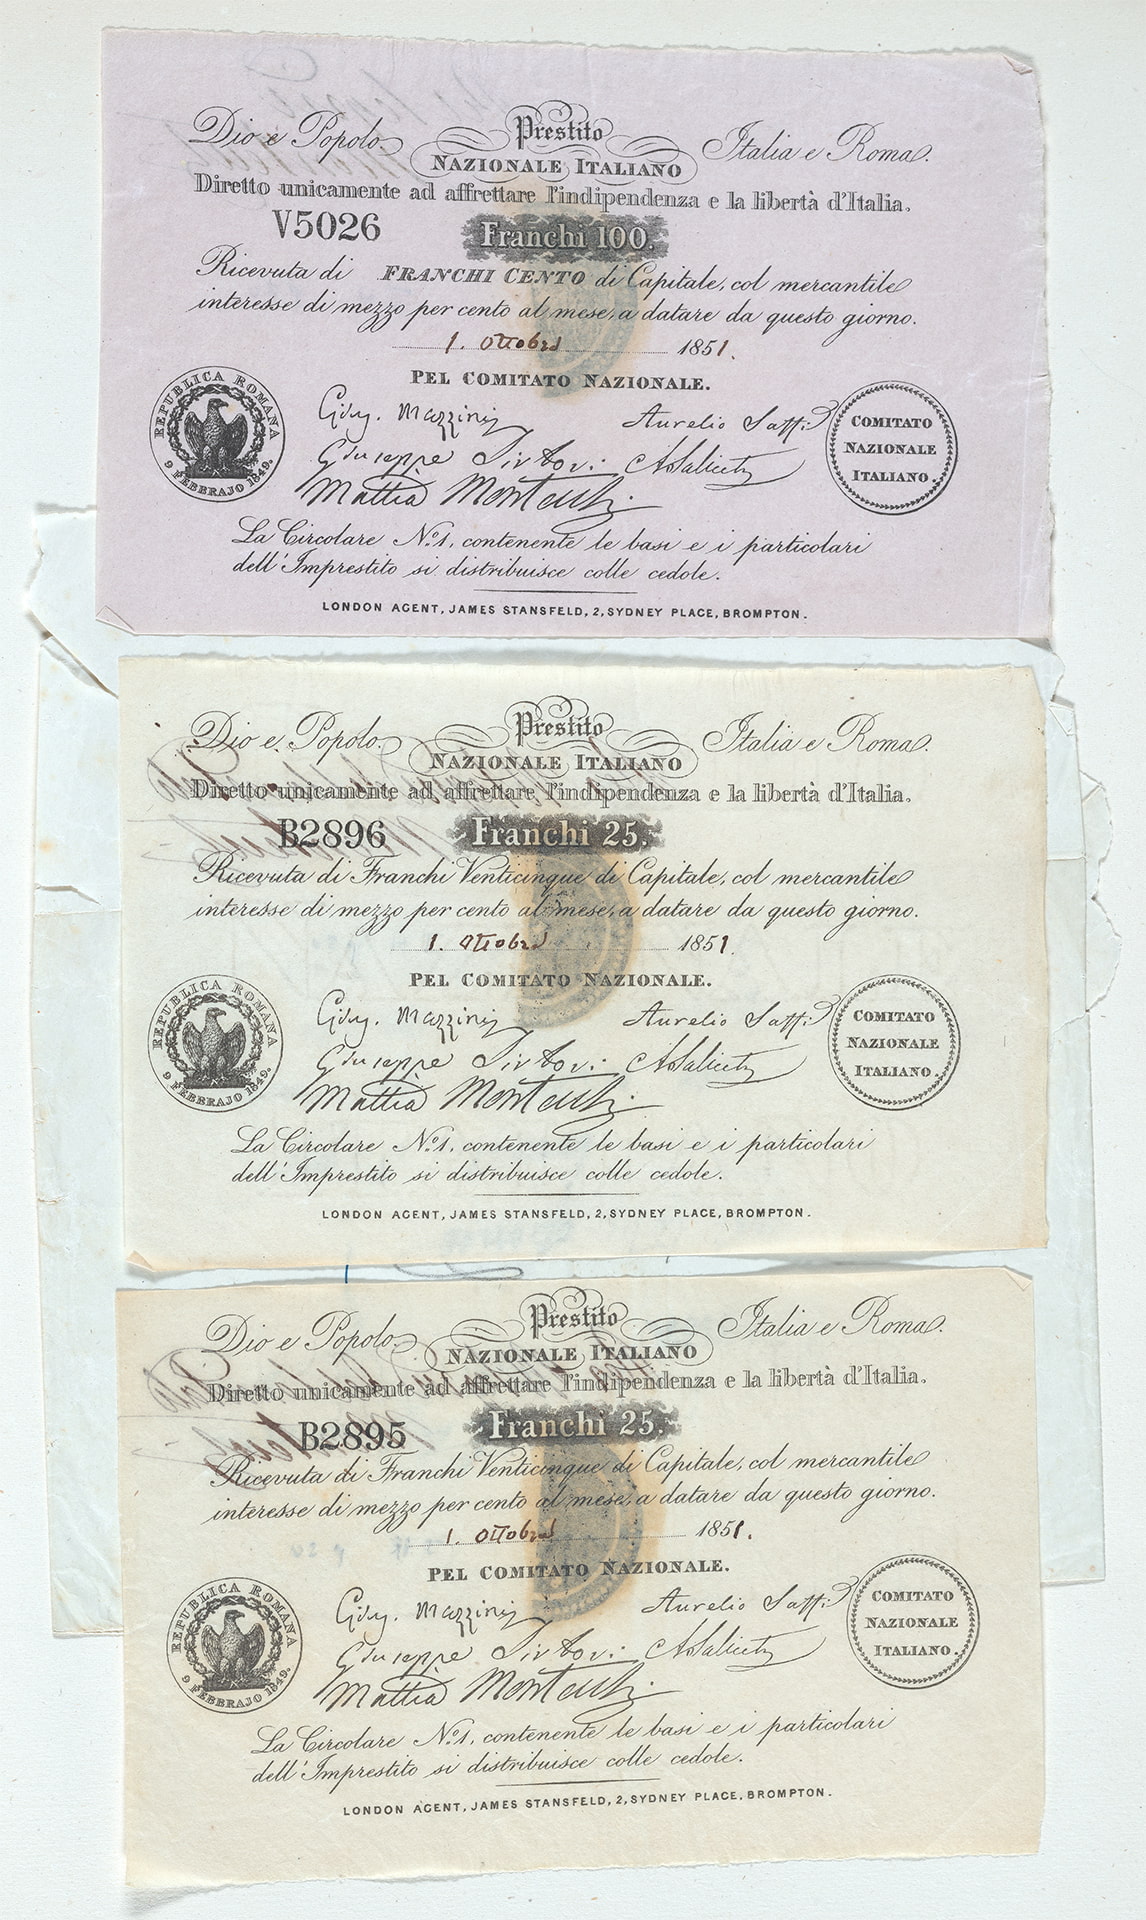 Dio e Popolo.
Prestito
Italia e Roma.
NAZIONALE ITALIANO
Diretto unicamente ad affrettare l'indipendenza e la libertà d'Italia.
V5026
Franchi 100.
Ricevuta di FRANCHI CENTO di Capitale, col mercantile
interesse di mezzo per cento al mese, a datare da questo giorno.
1. Ottobre 1851.
PEL COMITATO NAZIONALE.
REPUBLICA ROMANA
9 FEBBRAJO 1849.
Gius. Mazzini
Aurelio Saffi
Giuseppe Sirtori
A Saliceti
Mattia Montecchi.
COMITATO
NAZIONALE
ITALIANO.
La Circolare No. 1, contenente le basi e i particolari
dell'Imprestito si distribuisce colle cedole.
LONDON AGENT, JAMES STANSFELD, 2, SYDNEY PLACE, BROMPTON.
Dio e Popolo.
Prestito
Italia e Roma.
NAZIONALE ITALIANO
Diretto unicamente ad affrettare l'indipendenza e la libertà d'Italia.
B2896
Franchi 25.
Ricevuta di Franchi Venticinque di Capitale, col mercantile
interesse di mezzo per cento al mese, a datare da questo giorno.
1. Ottobre 1851.
PEL COMITATO NAZIONALE.
REPUBLICA ROMANA
9 FEBBRAJO 1849.
Gius. Mazzini
Aurelio Saffi
Giuseppe Sirtori
A Saliceti
Mattia Montecchi.
COMITATO
NAZIONALE
ITALIANO.
La Circolare No. 1, contenente le basi e i particolari
dell'Imprestito si distribuisce colle cedole.
LONDON AGENT, JAMES STANSFELD, 2, SYDNEY PLACE, BROMPTON.
Dio e Popolo.
Prestito
Italia e Roma.
NAZIONALE ITALIANO
Diretto unicamente ad affrettare l'indipendenza e la libertà d'Italia.
B2895
Franchi 25.
Ricevuta di Franchi Venticinque di Capitale, col mercantile
interesse di mezzo per cento al mese, a datare da questo giorno.
1. Ottobre 1851.
PEL COMITATO NAZIONALE.
REPUBLICA ROMANA
9 FEBBRAJO 1849.
Gius. Mazzini
Aurelio Saffi
Giuseppe Sirtori
A Saliceti
Mattia Montecchi.
COMITATO
NAZIONALE
ITALIANO.
La Circolare No. 1, contenente le basi e i particolari
dell'Imprestito si distribuisce colle cedole.
LONDON AGENT, JAMES STANSFELD, 2, SYDNEY PLACE, BROMPTON.